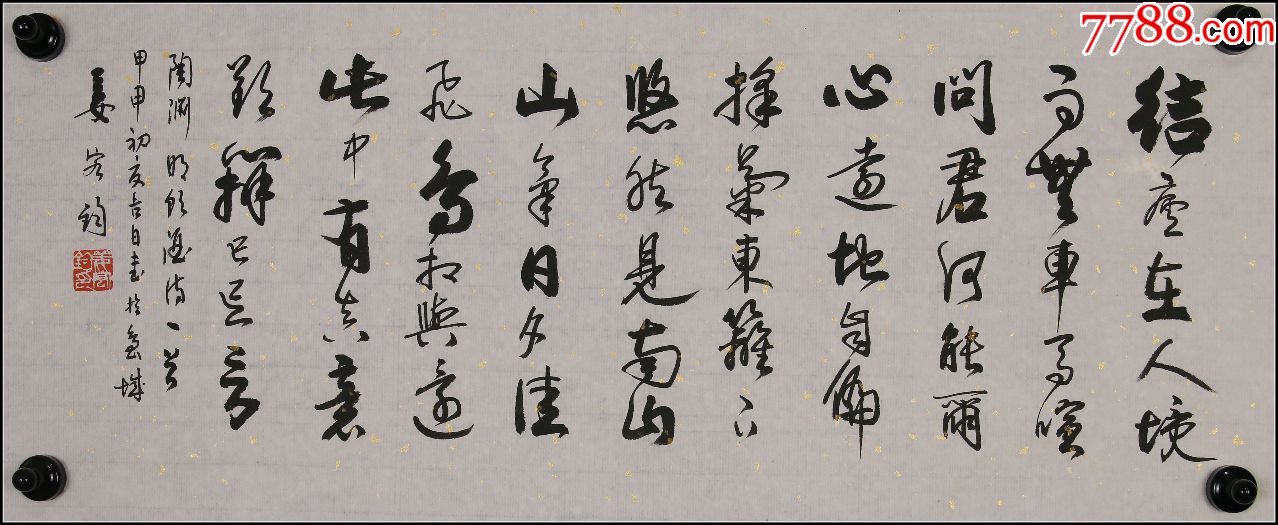 7788.com
结庐在人境
而无車马喧
问君何能爾
心遠地自偏
採菊東篱下
悠然见南山
山氣日夕佳
飛鸟相與還
此中有真意
欲辩已忘言
陶渊明饮酒诗一首
甲申初夏吉日书於
姜